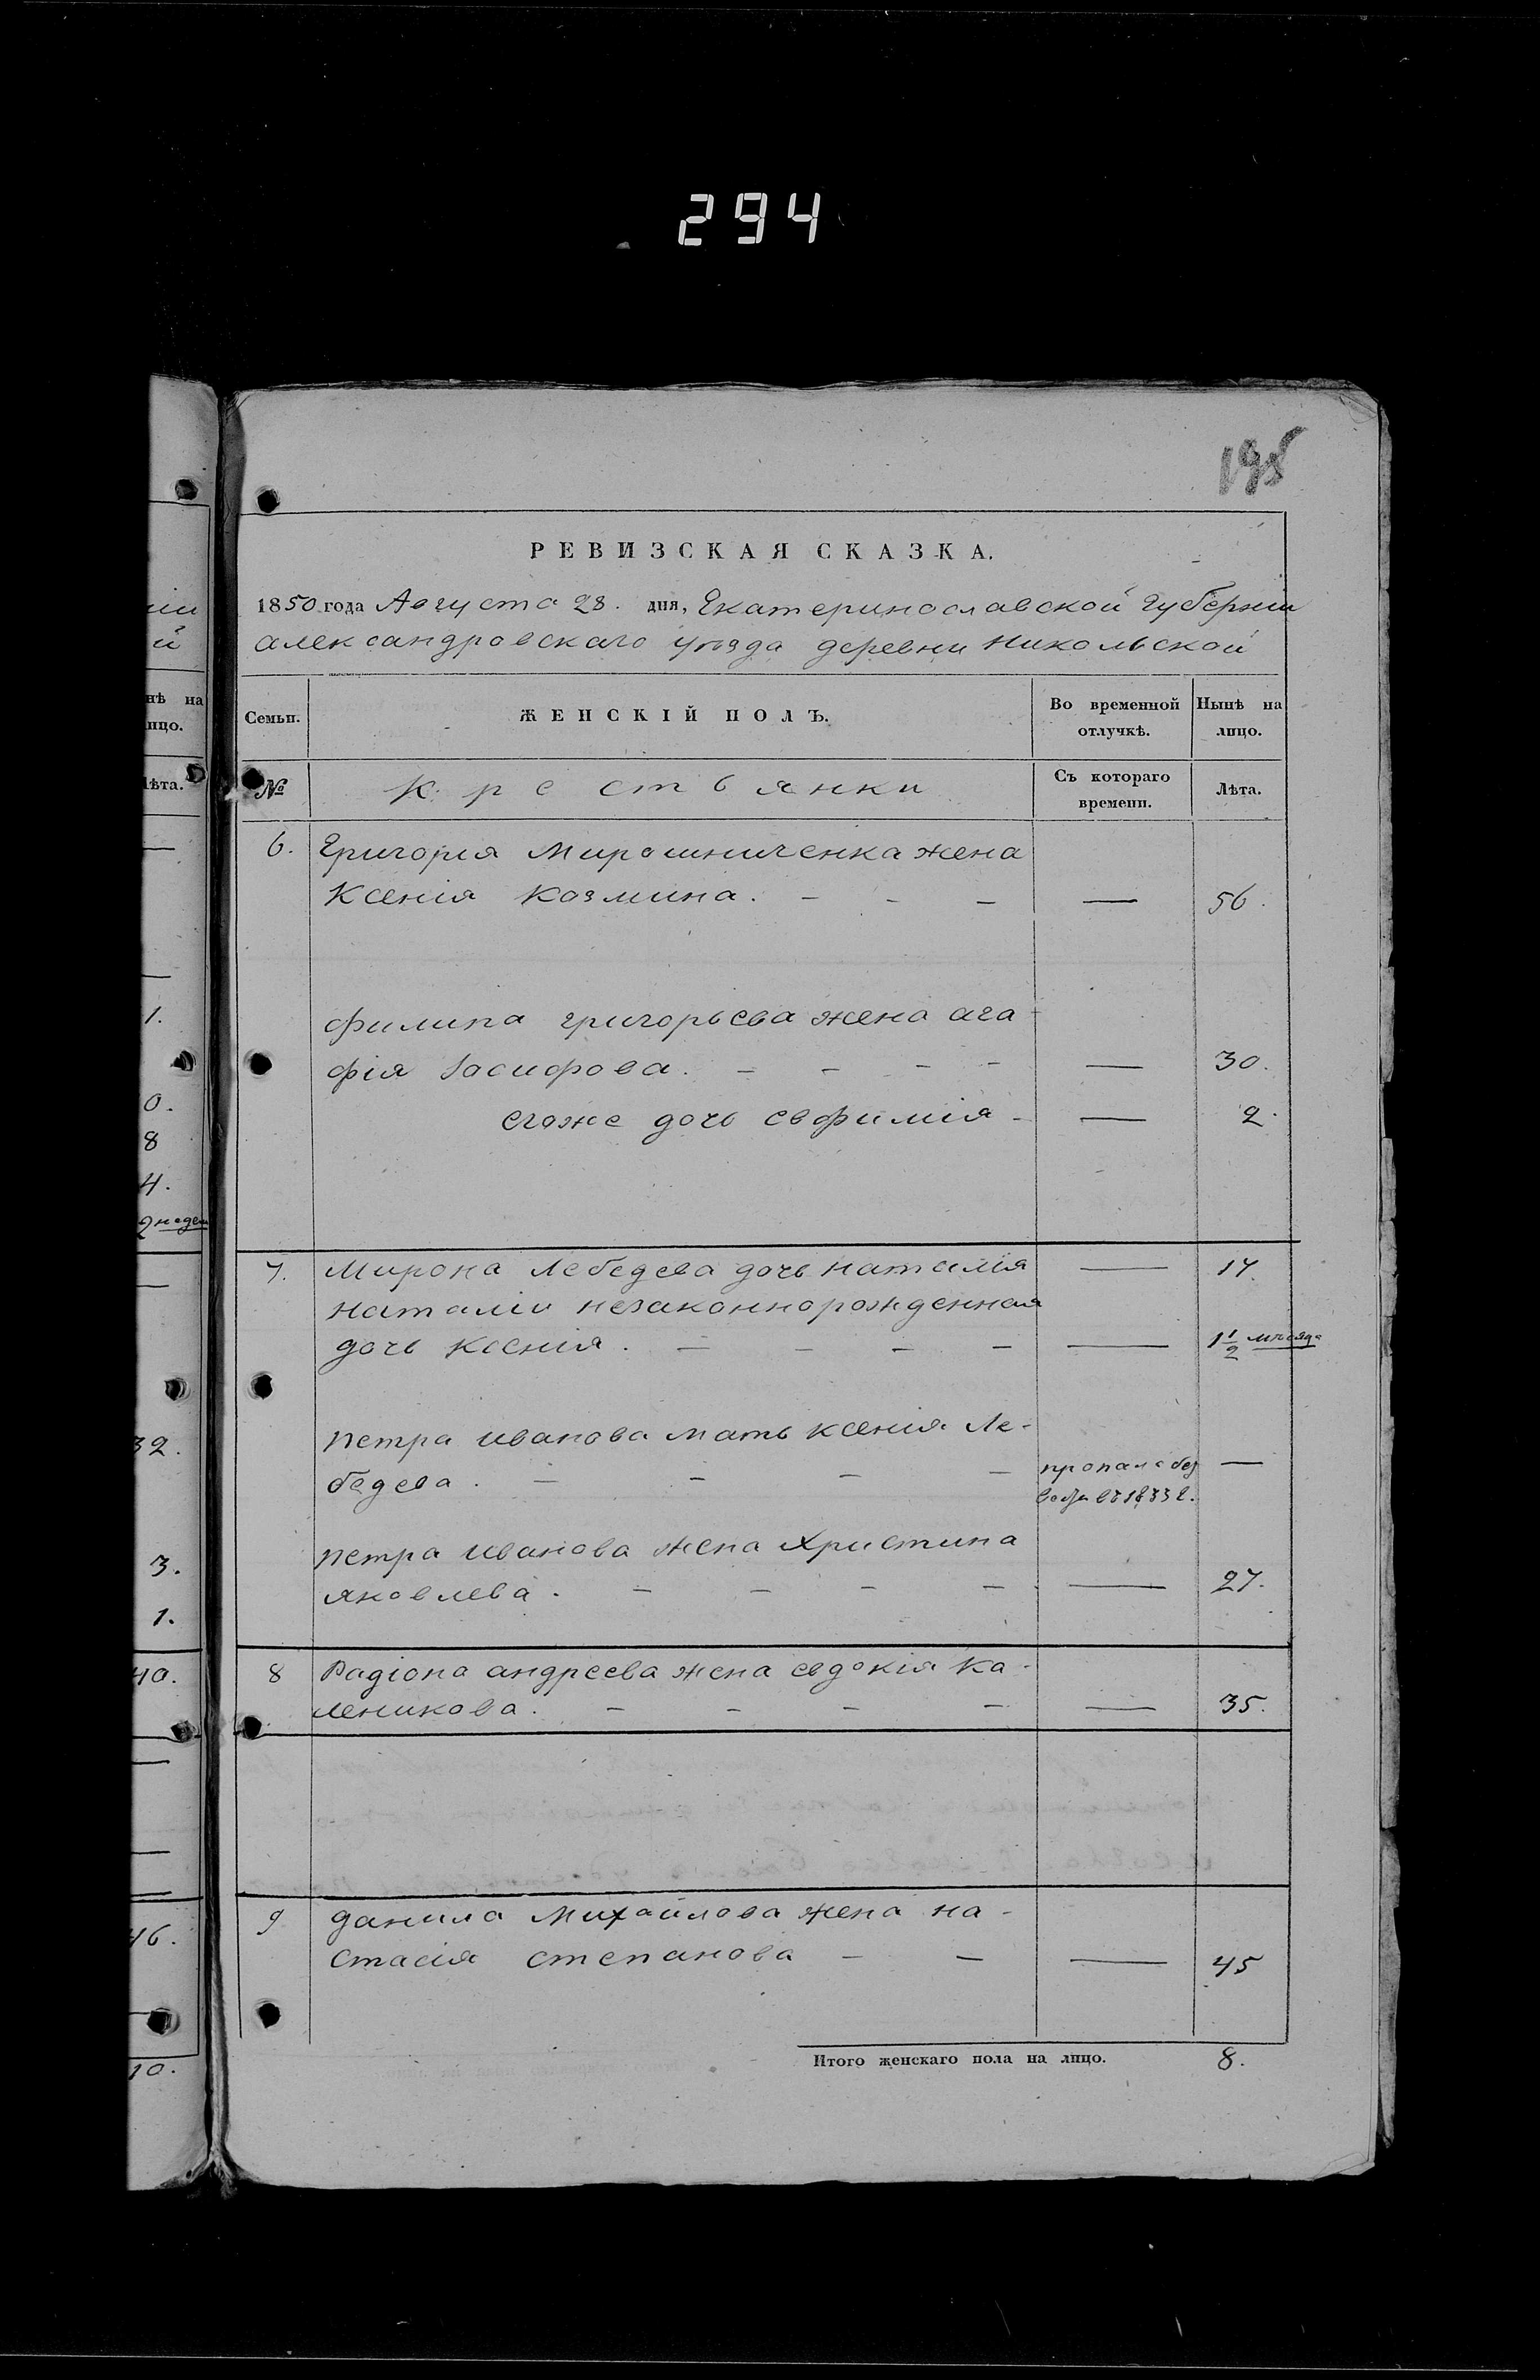 294
195
РЕВИЗСКАЯ СКАЗКА.
1850 года Августа 28. дня, Екатеринославской Губернии
александровскаго уѣзда деревни Никольской
Семьи.
ЖЕНСКІЙ ПОЛЪ.
Во временной отлучкѣ.
Нынѣ на лицо.
№
Крестьянки
Съ котораго времени.
Лѣта.
6. Григория Мирошниченка жена
Ксенія Козмина. - - - — 56.
Филипа григорьева жена ага-
фія Іосифова. - - - - — 30.
егоже дочь евфимія - — 2.
7. Мирона Лебедева дочь наталія — 17.
Наталіи незаконнорожденная
дочь Ксенія. - - - - — 1 1/2 мѣсяца
Петра иванова мать ксенія Ле-
бедева. - - - - пропала без —
вести въ 1833 г.
Петра иванова жена Христина
яковлева. - - - - — 27.
8 Радіона андреева жена евдокія Ка-
леникова. - - - - — 35.
9 данила Михайлова жена на-
стасія степанова - - — 45
Итого женскаго пола на лицо. 8.
ніи
й
нѣ на
ицо.
лѣта.
—
—
1.
0.
8
4.
2 недел
—
32.
3.
1.
40.
—
—
46.
10.